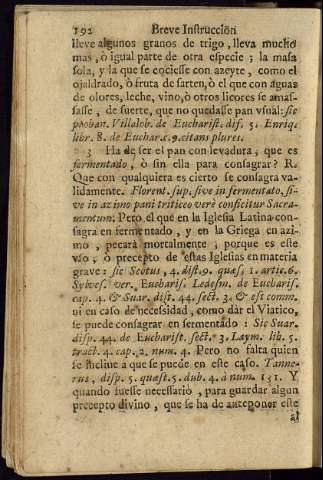 192 Breve Instruccion
lleve algunos granos de trigo, lleva mucho
mas, ò igual parte de otra especie; la masa
sola, y la que se cociesse con azeyte, como el
ojaldrado, ò fruta de sarten, ò el que con aguas
de olores, leche, vino, ò otros licores se amas-
sasse, de suerte, que no quedasse pan vsual: sic
proban. Villalob. de Eucharist. dif. 5. Enriq.
libr. 8. de Euchar. c. 9. citans plures.
3 Ha de ser el pan con levadura, que es
fermentado, ò sin ella para consagrar? R.
Que con qualquiera es cierto se consagra va-
lidamente. Florent. sup. sive in fermentato, si-
ve in azimo pani triticeo verè conficitur Sacra-
mentum. Pero el que en la Iglesia Latina con-
sagra en fermentado, y en la Griega en azi-
mo, pecarà mortalmente; porque es este
vso, ò precepto de estas Iglesias en materia
grave: sic Scotus, 4. dist. 9. quæs. 1. artic. 6.
Sylves. ver. Eucharis. Ledesm. de Eucharis.
cap. 4. & Suar. disp. 44. sect. 3. & est comm.
ni en caso de necessidad, como dar el Viatico,
se puede consagrar en fermentado: Sic Suar.
disp. 44. de Eucharist. sect. 3. Laym. lib. 5.
tract. 4. cap. 2. num. 4. Pero no falta quien
se incline à que se puede en este caso. Tanne-
rus, disp. 5. quæst. 5. dub. 4. à num. 131. Y
quando fuesse necessario, para guardar algun
precepto divino, que se ha de anteponer este
al